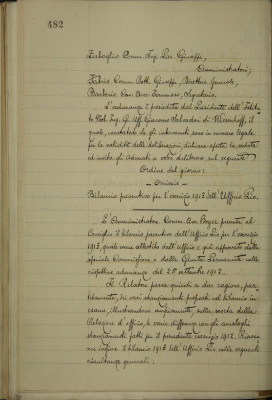 482
Zerboglio Comm. Ing. Pier Giuseppe,
Amministratori;
Comm. Dott. Giuseppe, Direttore Generale,
Barberis Cav. Avv. Tommaso, Segretario.
L'adunanza è presieduta dal Presidente dell'
to Nob. Ing. Gr. Uff. Giacomo Salvadori di Wiesenhoff, il
quale, constatato che gli intervenuti sono in numero legale
per la validità delle deliberazioni dichiara aperta la seduta
ed invita gli adunati a voler deliberare sul seguente
Ordine del giorno:
- Omissis -
Bilancio preventivo per l'esercizio 1913 dell'Ufficio Pio.
L'Amministratore Comm. Avv. presenta al
Consiglio il bilancio preventivo dell'Ufficio Pio per l'esercizio
1913, quale venne allestito dall'Ufficio e già approvato dalla
speciale Commissione e dalla Giunta Permanente nelle
rispettive adunanze del 25 settembre 1912.
Il Relatore passa quindi a dar ragione, par-
titamente, dei vari stanziamenti proposti nel bilancio in
esame, illustrandone sulla scorta della
Relazione d'ufficio, le varie differenze con gli analoghi
stanziamenti fatti per il precedente esercizio 1912. Riassu-
me infine il bilancio 1913 dell'Ufficio Pio nelle seguenti
risultanze generali: